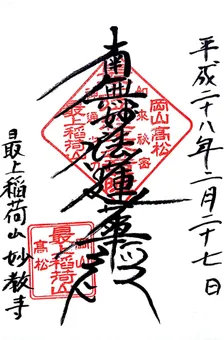 平成二十八年二月二十七日
岡山高松
南無妙法蓮華経
最上稲荷山
高松
最上稲荷山妙教寺